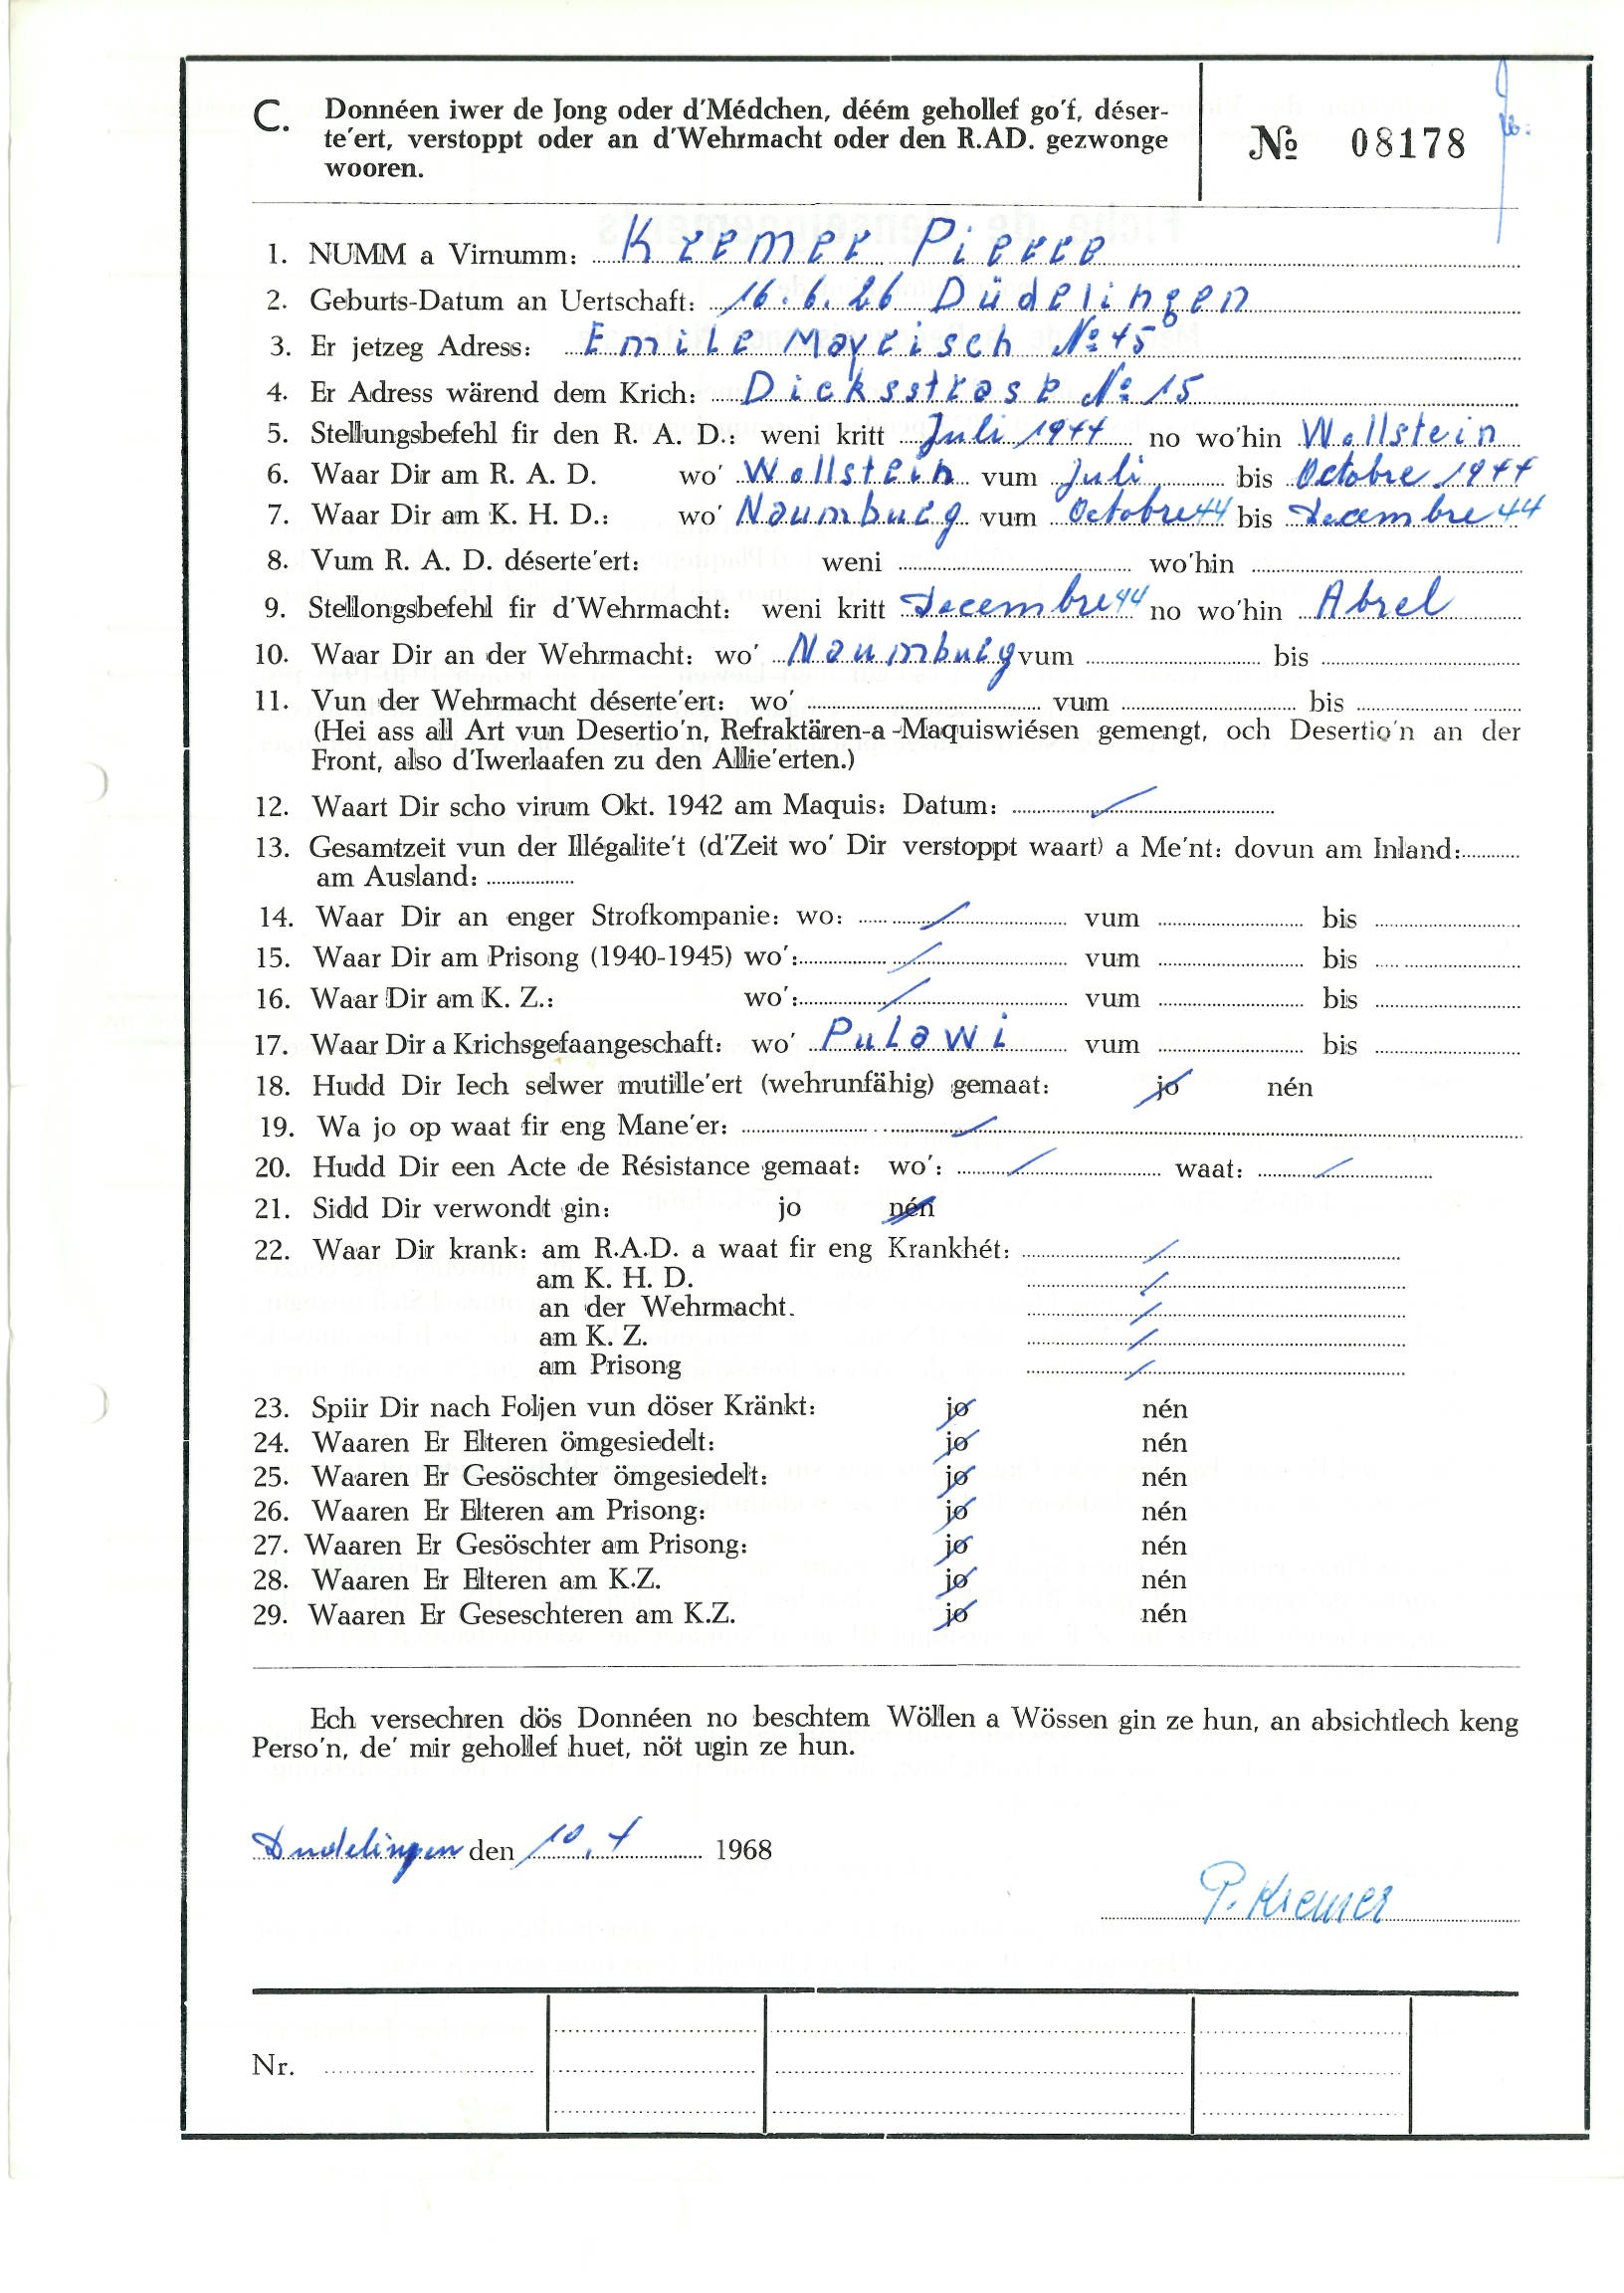 C. Donnéen iwer de Jong oder d'Médchen, déém gehollef go'f, déser-
te'ert, verstoppt oder an d'Wehrmacht oder den R.AD. gezwonge
wooren.
№ 08178
1. NUMM a Virnumm: Kremer Pierre
2. Geburts-Datum an Uertschaft: 16.6.26 Düdelingen
3. Er jetzeg Adress: Emile Mayrisch № 45
4. Er Adress wärend dem Krich: Dicksstrase № 15
5. Stellungsbefehl fir den R. A. D.: weni kritt Juli 1944 no wo'hin Wollstein
6. Waar Dir am R. A. D. wo' Wollstein vum Juli bis Octobre 1944
7. Waar Dir am K. H. D.: wo' Naumburg vum Octobre 44 bis Decembre 44
8. Vum R. A. D. déserte'ert: weni wo'hin
9. Stellongsbefehl fir d'Wehrmacht: weni kritt Decembre 44 no wo'hin Abrel
10. Waar Dir an der Wehrmacht: wo' Naumburg vum bis
11. Vun der Wehrmacht déserte'ert: wo' vum bis
(Hei ass all Art vun Desertio'n, Refraktären-a-Maquiswiésen gemengt, och Desertio'n an der
Front, also d'Iwerlaafen zu den Allie'erten.)
12. Waart Dir scho virum Okt. 1942 am Maquis: Datum:
13. Gesamtzeit vun der Illégalite't (d'Zeit wo' Dir verstoppt waart) a Me'nt: dovun am Inland:
am Ausland:
14. Waar Dir an enger Strofkompanie: wo: vum bis
15. Waar Dir am Prisong (1940-1945) wo': vum bis
16. Waar Dir am K. Z.: wo': vum bis
17. Waar Dir a Krichsgefaangeschaft: wo' Pulawi vum bis
18. Hudd Dir Iech selwer mutille'ert (wehrunfähig) gemaat: jo nén
19. Wa jo op waat fir eng Mane'er:
20. Hudd Dir een Acte de Résistance gemaat: wo': waat:
21. Sidd Dir verwondt gin: jo nén
22. Waar Dir krank: am R.A.D. a waat fir eng Krankhét:
am K. H. D.
an der Wehrmacht.
am K. Z.
am Prisong
23. Spiir Dir nach Foljen vun döser Kränkt: jo nén
24. Waaren Er Elteren ömgesiedelt: jo nén
25. Waaren Er Gesöschter ömgesiedelt: jo nén
26. Waaren Er Elteren am Prisong: jo nén
27. Waaren Er Gesöschter am Prisong: jo nén
28. Waaren Er Elteren am K.Z. jo nén
29. Waaren Er Geseschteren am K.Z. jo nén
Ech versechren dös Donnéen no beschtem Wöllen a Wössen gin ze hun, an absichtlech keng
Perso'n, de' mir gehollef huet, nöt ugin ze hun.
Dudelingen den 10.4 1968
P. Kremer
Nr.